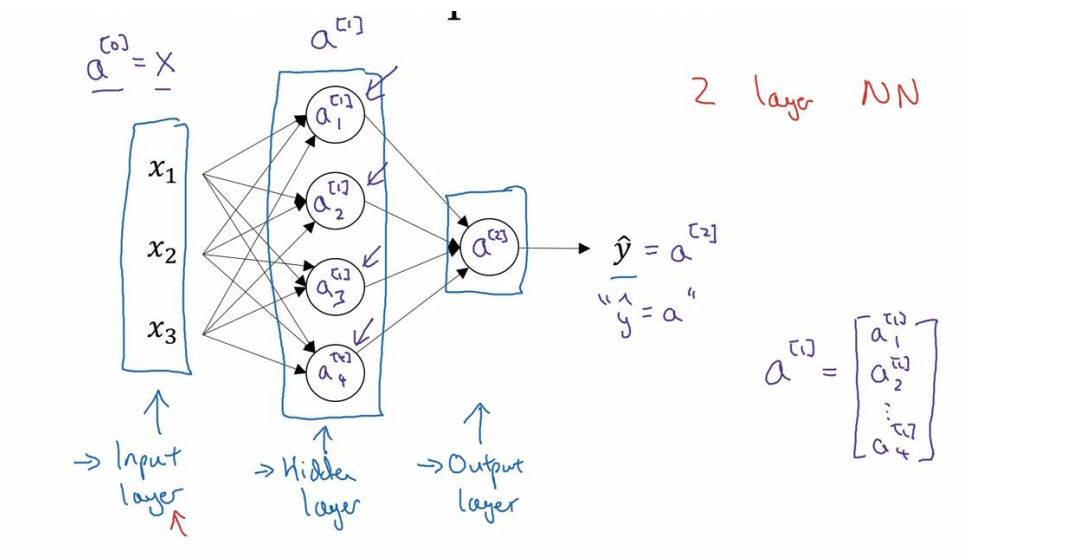 a^[0] = X
a^[1]
2 layer NN
x₁
x₂
x₃
a₁^[1]
a₂^[1]
a₃^[1]
a₄^[4]
a^[2]
ŷ = a^[2]
"ŷ = a"
a^[1] = [a₁^[1]
a₂^[1]
⋮
a₄^[1]]
→ Input layer
→ Hidden layer
→ Output layer